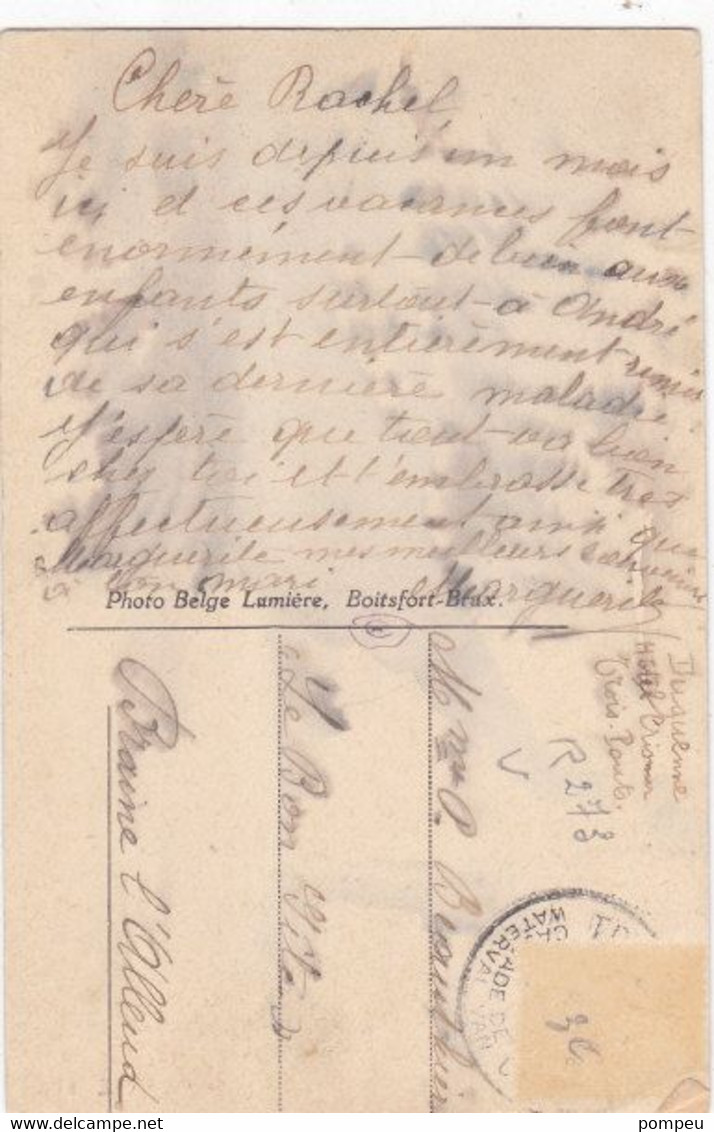 Cherè Rachel
Je suis depuis un mois
ici et ces vacances font
enormément de bien aux
enfants surtout à André
qui s'est entièrement remis
de sa dernière maladie.
J'espère que tout va bien
chez toi et t'embrasse très
affectueusement ainsi que
Marguerite mes meilleurs souvenirs
à ton mari Marguerite
Photo Belge Lumière, Boitsfort-Brux.
Hôtel Crismer
Trois-Ponts.
R 273
V
Mme P.
Le Bon
Braine l'Alleud
CASCADE DE
WATERVAL VAN
pompeu